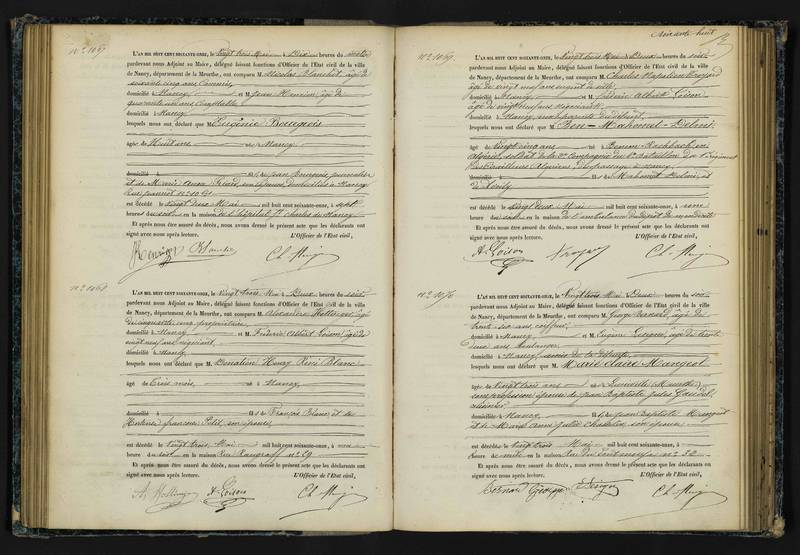 N° 1067
L'AN MIL HUIT CENT SOIXANTE-ONZE, le vingt trois Mai à heures du
pardevant nous Adjoint au Maire, délégué faisant fonctions d'Officier de l'Etat civil de la ville
de Nancy, département de la Meurthe, ont comparu M. Nicolas Blanchet, âgé de
soixante cinq ans
domicilié à Nancy et Jean Henrion, âgé de
quarante un ans
domicilié à Nancy
lesquels nous ont déclaré que M. Eugénie Bourgeois
âgée de Huit ans née à Nancy
domicilié à fille de Jean Bourgeois journalier
et de Marie Anne son épouse domiciliés à Nancy
est décédé le vingt deux Mai mil huit cent soixante-onze, à sept
heures du soir en la maison de l'hôpital St Charles de Nancy
Et après nous être assuré du décès, nous avons dressé le présent acte que les déclarants ont
signé avec nous après lecture. L'Officier de l'Etat civil,
Henrion Blanchet
N° 1068
L'AN MIL HUIT CENT SOIXANTE-ONZE, le vingt trois Mai à Deux heures du soir
pardevant nous Adjoint au Maire, délégué faisant fonctions d'Officier de l'Etat civil de la ville
de Nancy, département de la Meurthe, ont comparu M. Alexandre âgé
de cinquante cinq propriétaire
domicilié à Nancy et Frédéric Albert Loison, âgé de
vingt neuf ans négociant
domicilié à Nancy
lesquels nous ont déclaré que M. Donatien Henry René Blanc
âgé de trois mois né à Nancy
domicilié à fils de François Blanc et de
Hortense françoise Petit, son épouse
est décédé le vingt trois Mai mil huit cent soixante-onze, à
heure du en la maison Rue n° 29
Et après nous être assuré du décès, nous avons dressé le présent acte que les déclarants ont
signé avec nous après lecture. L'Officier de l'Etat civil,
A. Loison
soixante huit
N° 1069
L'AN MIL HUIT CENT SOIXANTE-ONZE, le vingt trois Mai à Deux heures du soir
pardevant nous Adjoint au Maire, délégué faisant fonctions d'Officier de l'Etat civil de la ville
de Nancy, département de la Meurthe, ont comparu M. Charles Napoléon
âgé de vingt neuf ans
domicilié à Nancy et Frédéric Albert Loison
âgé de vingt neuf ans négociant
domicilié à Nancy
lesquels nous ont déclaré que M. Ben-Mahomet-Delmi
âgé de vingt cinq ans né à
Algérie, soldat de la 2e Compagnie du 4e Bataillon du 1er Régiment
de Tirailleurs
domicilié à fils de Mahomet Delmi, et
de
est décédé le vingt deux Mai mil huit cent soixante-onze, à onze
heures du soir en la maison de l'ambulance
Et après nous être assuré du décès, nous avons dressé le présent acte que les déclarants ont
signé avec nous après lecture. L'Officier de l'Etat civil,
A. Loison
N° 1070
L'AN MIL HUIT CENT SOIXANTE-ONZE, le vingt trois Mai à Deux heures du soir
pardevant nous Adjoint au Maire, délégué faisant fonctions d'Officier de l'Etat civil de la ville
de Nancy, département de la Meurthe, ont comparu M. George Bernard, âgé de
trente six ans coiffeur
domicilié à Nancy et Eugène âgé de trente
deux ans boulanger
domicilié à Nancy amis de la défunte
lesquels nous ont déclaré que M. Marie Claire Mangeot
âgée de vingt trois ans née à Lunéville (Meurthe)
sans profession épouse de Jean Baptiste Jules
domiciliée à Nancy fille de Jean Baptiste Mangeot
et de Marie Anne Julie son épouse
est décédée le vingt trois Mai mil huit cent soixante-onze, à
heure en la maison Rue n° 32
Et après nous être assuré du décès, nous avons dressé le présent acte que les déclarants ont
signé avec nous après lecture. L'Officier de l'Etat civil,
Bernard George